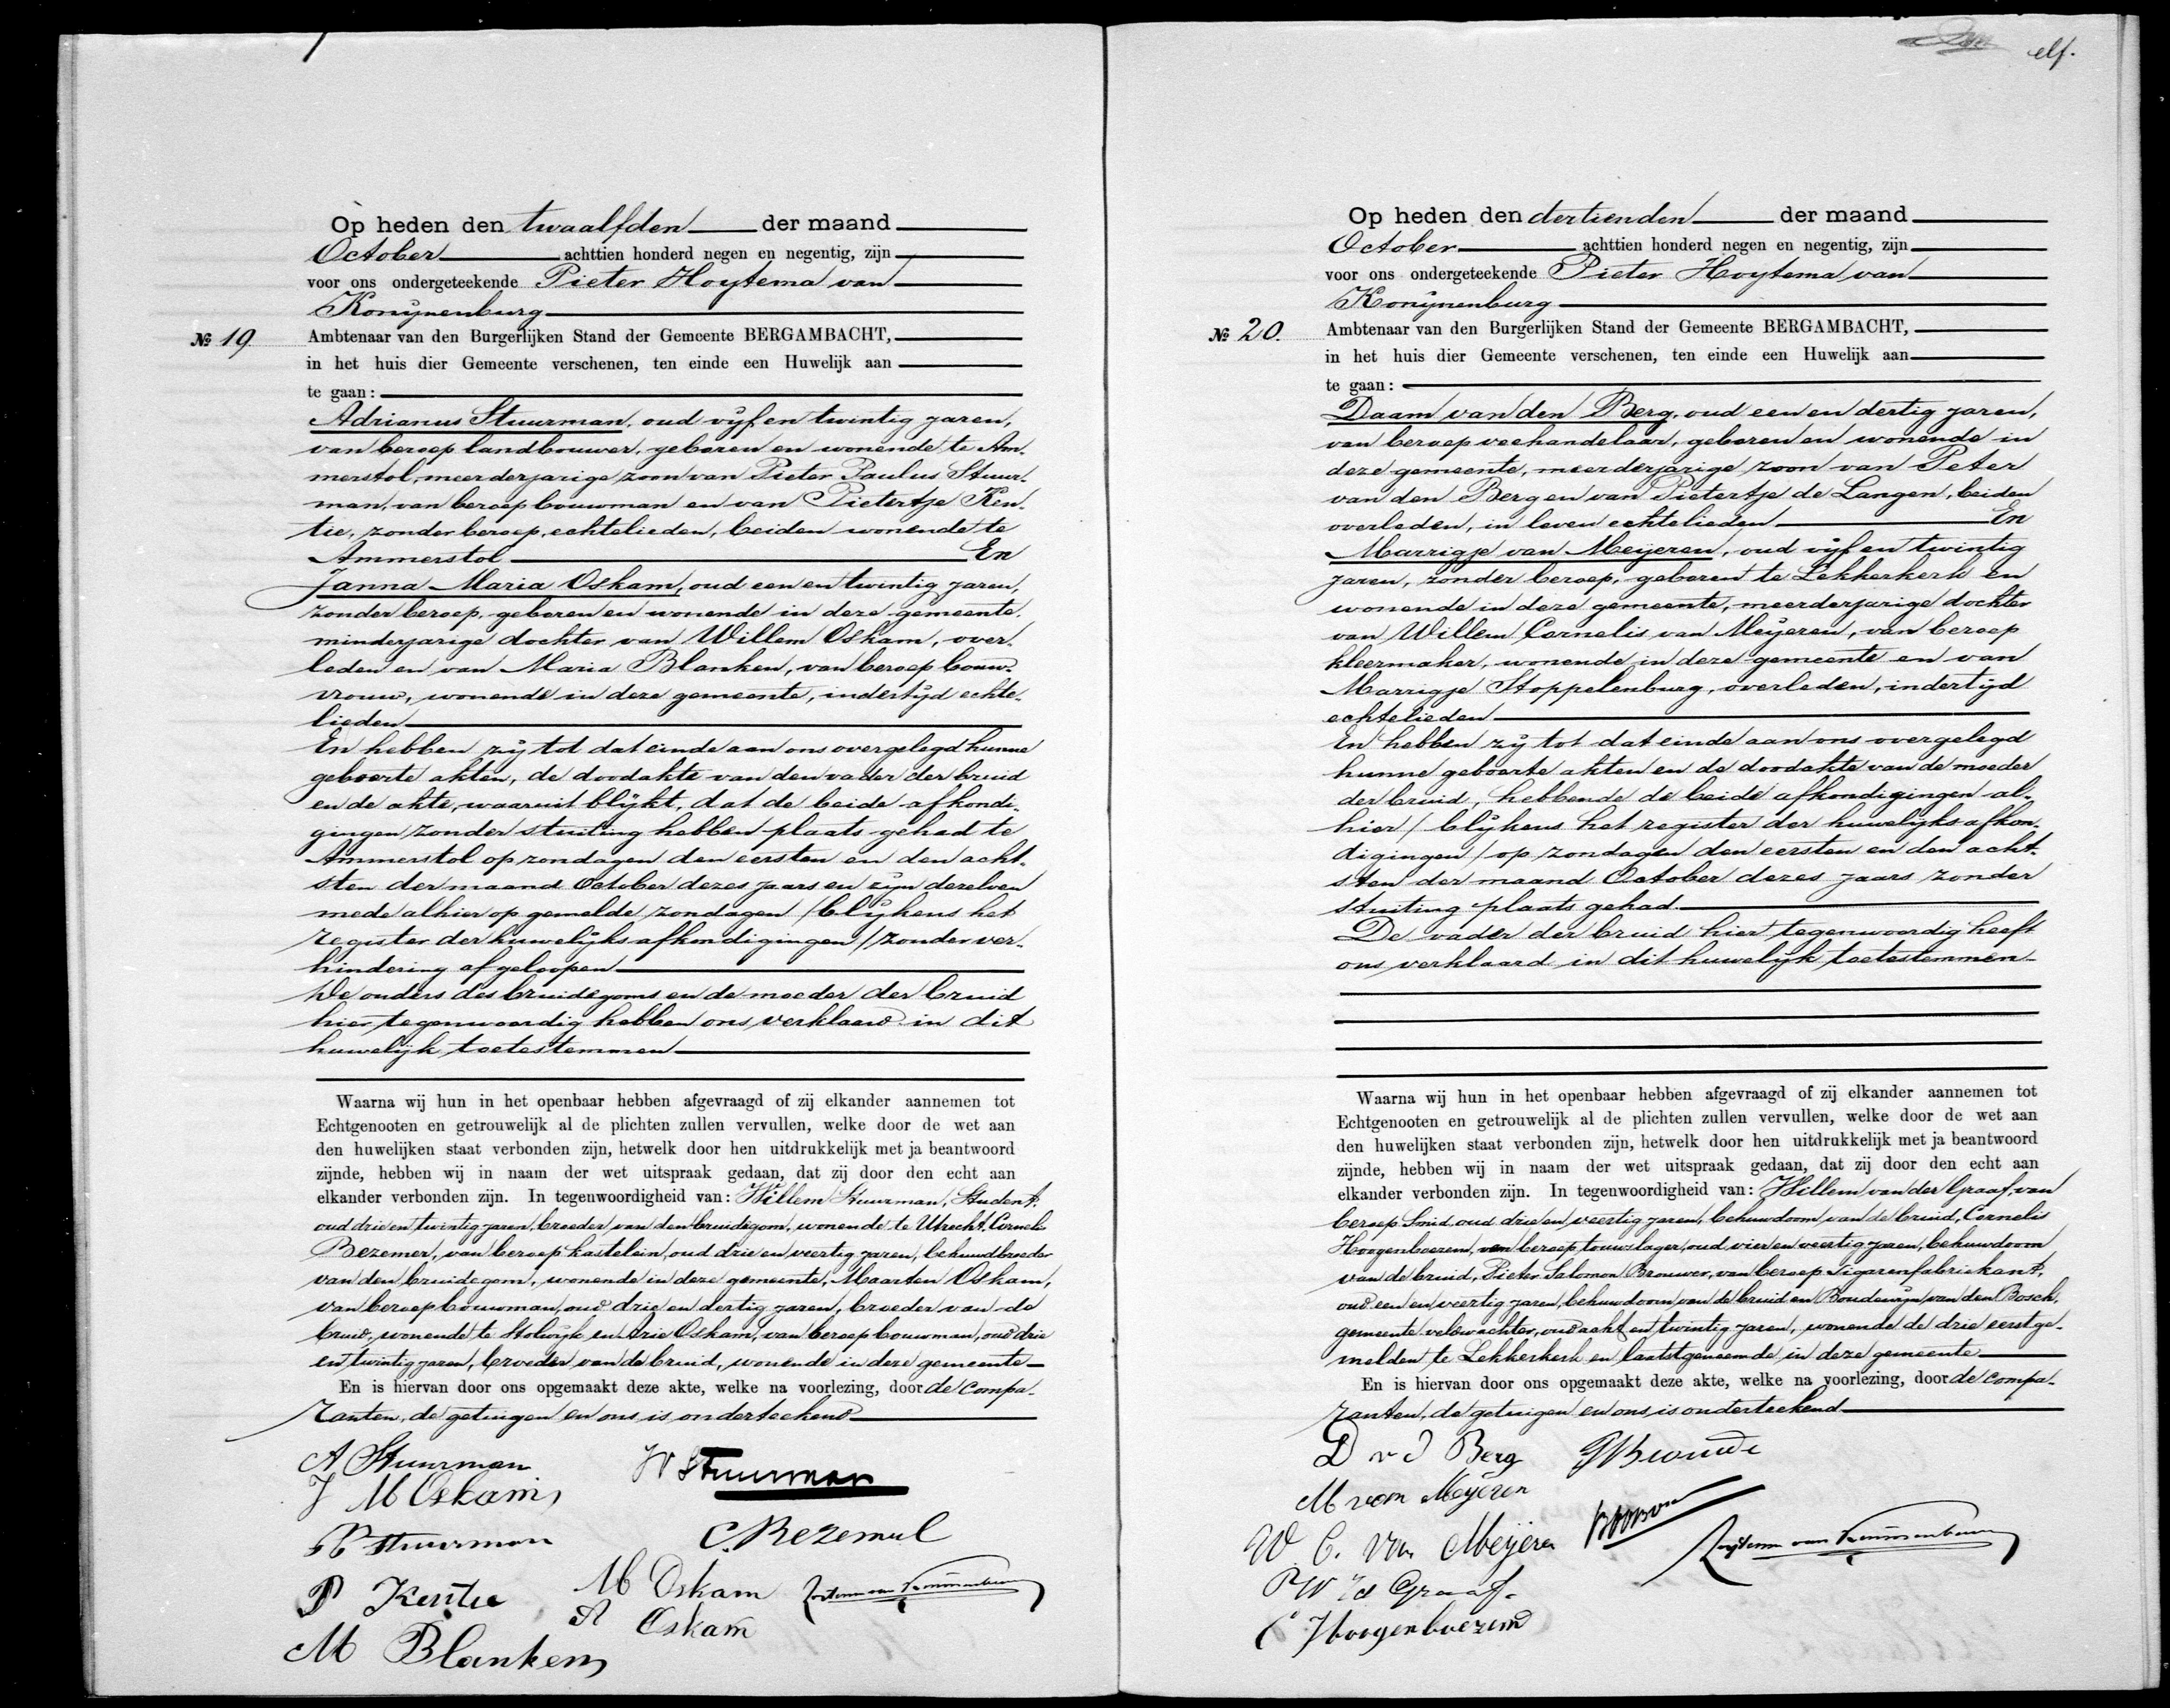 elf.
Op heden den twaalfden der maand
October achttien honderd negen en negentig, zijn
voor ons ondergeteekende Pieter Hoytema van
Konijnenburg
№ 19 Ambtenaar van den Burgerlijken Stand der Gemeente BERGAMBACHT,
in het huis dier Gemeente verschenen, ten einde een Huwelijk aan
te gaan:
Adrianus Stuurman, oud vijf en twintig jaren,
van beroep landbouwer, geboren en wonende te Am-
merstol, meerderjarige zoon van Pieter Paulus Stuur-
man, van beroep bouwman en van Pietertje Ken-
tie, zonder beroep, echtelieden, beiden wonende te
Ammerstol En
Janna Maria Oskam, oud een en twintig jaren,
zonder beroep, geboren en wonende in deze gemeente,
minderjarige dochter van Willem Oskam, over-
leden en van Maria Blanken, van beroep bouw-
vrouw, wonende in deze gemeente, indertijd echte-
lieden
En hebben zij tot dat einde aan ons overgelegd hunne
geboorte akten, de doodakte van den vader der bruid
en de akte, waaruit blijkt, dat de beide afkondi-
gingen zonder stuiting hebben plaats gehad te
Ammerstol op zondagen den eersten en den acht-
sten der maand October dezes jaars en zijn dezelven
mede alhier op gemelde zondagen (blijkens het
register der huwelijks afkondigingen) zonder ver-
hindering afgeloopen
De ouders des bruidegoms en de moeder der bruid
hier tegenwoordig hebben ons verklaard in dit
huwelijk toetestemmen
Waarna wij hun in het openbaar hebben afgevraagd of zij elkander aannemen tot
Echtgenooten en getrouwelijk al de plichten zullen vervullen, welke door de wet aan
den huwelijken staat verbonden zijn, hetwelk door hen uitdrukkelijk met ja beantwoord
zijnde, hebben wij in naam der wet uitspraak gedaan, dat zij door den echt aan
elkander verbonden zijn. In tegenwoordigheid van: Willem Stuurman, Student,
oud drie en twintig jaren, broeder van den bruidegom, wonende te Utrecht, Cornelis
Bezemer, van beroep kastelein, oud drie en veertig jaren, behuwdbroeder
van den bruidegom, wonende in deze gemeente, Maarten Oskam,
van beroep bouwman, oud drie en dertig jaren, broeder van de
bruid, wonende te Stolwijk en Arie Oskam, van beroep bouwman, oud drie
en twintig jaren, broeder van de bruid, wonende in deze gemeente
En is hiervan door ons opgemaakt deze akte, welke na voorlezing, door de compa-
ranten, de getuigen en ons is onderteekend
A Stuurman W Stuurman
J M Oskam
P P Stuurman C. Bezemer
P Kentie M Oskam Hoytema van Konijnenburg
A Oskam
M Blanken
Op heden den dertienden der maand
October achttien honderd negen en negentig, zijn
voor ons ondergeteekende Pieter Hoytema van
Konijnenburg
№ 20. Ambtenaar van den Burgerlijken Stand der Gemeente BERGAMBACHT,
in het huis dier Gemeente verschenen, ten einde een Huwelijk aan
te gaan:
Daam van den Berg, oud een en dertig jaren,
van beroep veehandelaar, geboren en wonende in
deze gemeente, meerderjarige zoon van Peter
van den Berg en van Pietertje de Langen, beiden
overleden, in leven echtelieden En
Marrigje van Meijeren, oud vijf en twintig
jaren, zonder beroep, geboren te Lekkerkerk en
wonende in deze gemeente, meerderjarige dochter
van Willem Cornelis van Meijeren, van beroep
kleermaker, wonende in deze gemeente en van
Marrigje Stoppelenburg, overleden, indertijd
echtelieden
En hebben zij tot dat einde aan ons overgelegd
hunne geboorte akten en de doodakte van de moeder
der bruid, hebbende de beide afkondigingen al-
hier (blijkens het register der huwelijks afkon-
digingen) op zondagen den eersten en den acht-
sten der maand October dezes jaars zonder
stuiting plaats gehad.
De vader der bruid hier tegenwoordig heeft
ons verklaard in dit huwelijk toetestemmen
Waarna wij hun in het openbaar hebben afgevraagd of zij elkander aannemen tot
Echtgenooten en getrouwelijk al de plichten zullen vervullen, welke door de wet aan
den huwelijken staat verbonden zijn, hetwelk door hen uitdrukkelijk met ja beantwoord
zijnde, hebben wij in naam der wet uitspraak gedaan, dat zij door den echt aan
elkander verbonden zijn. In tegenwoordigheid van: Willem van der Graaf, van
beroep Smid, oud drie en veertig jaren, behuwdoom van de bruid, Cornelis
Hoogenboezem, van beroep touwslager, oud vier en veertig jaren, behuwdoom
van de bruid, Pieter Salomon Brouwer, van beroep Sigarenfabriekant,
oud een en veertig jaren, behuwdoom van de bruid en Boudewijn van den Bosch,
gemeente veldwachter, oud acht en twintig jaren, wonende de drie eerstge-
melden te Lekkerkerk en laatstgenoemde in deze gemeente
En is hiervan door ons opgemaakt deze akte, welke na voorlezing, door de compa-
ranten, de getuigen en ons, is onderteekend
D v d Berg
M van Meijeren
W. C. van Meijeren Hoytema van Konijnenburg
W vd Graaf
C Hoogenboezem